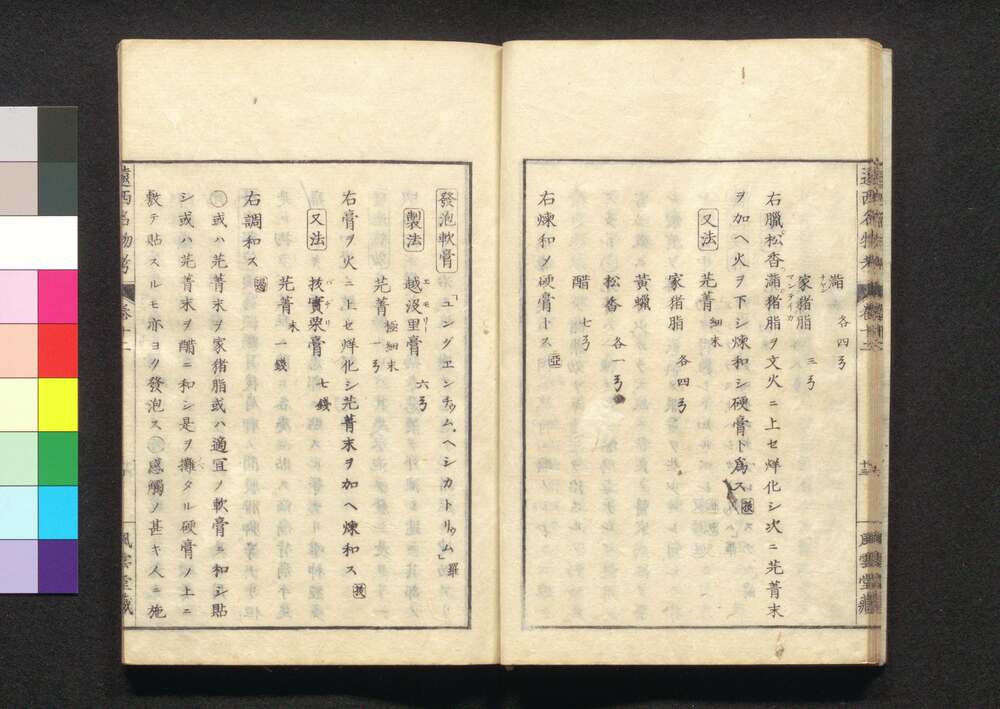 瀝 各四ヲ
家猪脂 三ヲ
右臘松香瀝猪脂ヲ文火ニ上セ烊化シ次ニ芫菁末
ヲ加ヘ火ヲ下シ煉和シ硬膏ト爲ス 扶
又法 芫菁 細末
家猪脂 各四ヲ
黃蠟
松香 各一ヲ
醋 七ヲ
右煉和メ硬膏トス 亞
發泡軟膏 「ユングエンチゥム、ヘシカトリゥム」羅
製法 越沒里膏 エモリー 六ヲ
芫菁 極細末 一ヲ
右膏ヲ火ニ上セ烊化シ芫菁末ヲ加ヘ煉和ス 扶
又法 扶實栗膏 バシリ 七錢
芫菁 末 一錢
右調和ス
或ハ芫菁末ヲ家猪脂或ハ適宜ノ軟膏ニ和シ貼
シ或ハ芫菁末ヲ醋ニ和シ是ヲ攤タル硬膏ノ上ニ
敷テ貼スルモ亦ヨク發泡ス 感觸ノ甚キ人ニ施
遠西名物考 卷十二 風雲堂藏